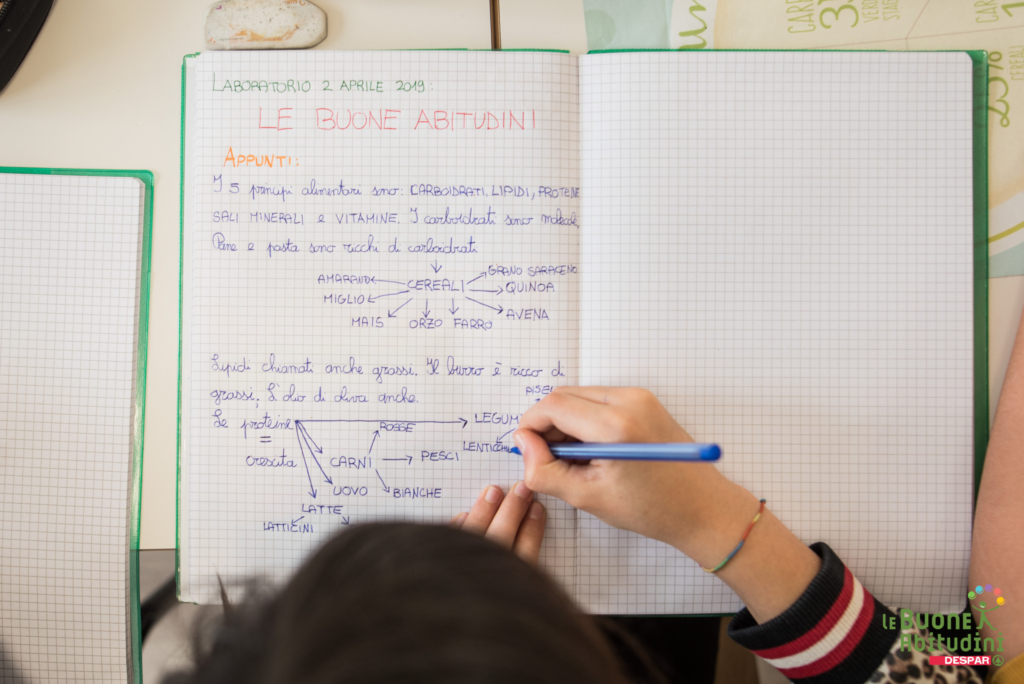 LABORATORIO 2 APRILE 2019:
LE BUONE ABITUDINI
APPUNTI:
I 5 principi alimentari sono: CARBOIDRATI, LIPIDI, PROTEINE
SALI MINERALI e VITAMINE. I carboidrati sono molecole,
Pane e pasta sono ricchi di carboidrati
AMARANTO CEREALI GRANO SARACENO
MIGLIO QUINOA
MAIS ORZO FARRO AVENA
Lipidi chiamati anche grassi. Il burro è ricco di
grassi; L'olio di oliva anche.
PISEL
Le proteine LEGUMI
=
ROSSE
LENTICCHI
crescita CARNI PESCI
UOVO BIANCHE
LATTE
LATTICINI
CARB
35
VERD
CARB
25%
CEREALI
le BUONE
Abitudini
DESPAR